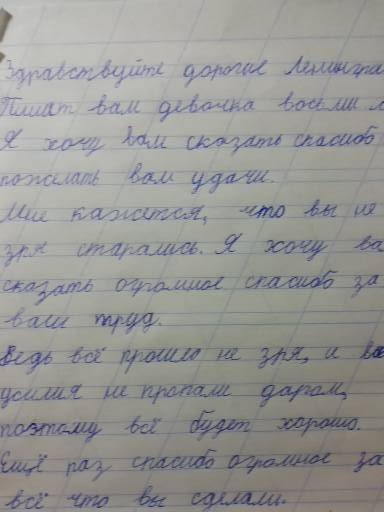 Здравствуйте дорогие Ленингра
Пишат вам девочка восьми л
Я хочу вам сказать спасибо
пожелать вам удачи.
Мне кажется, что вы не
зря старались. Я хочу ва
сказать огромное спасибо за
ваш труд.
Ведь всё прошло не зря, и ваши
усилия не пропали даром,
поэтому всё будет хорошо.
Ещё раз спасибо огромное за
всё что вы сделали.